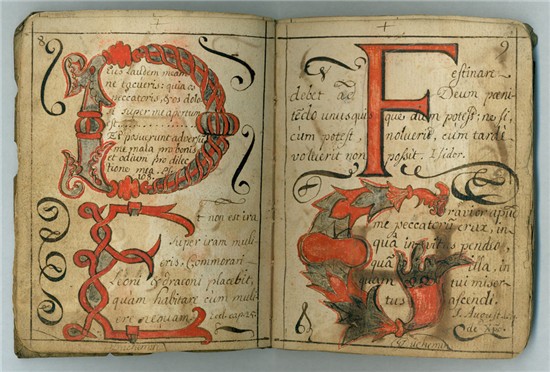 8
D
eus laudem meam
ne tacueris: quia os
peccatoris, & os dolo
si super me apertum
est
Et posuerunt adversũ
me mala pro bonis
et odium pro dilec
tione mea. Ps:
108.
E
t non est ira
super iram muli
eris; Commorari
leoni & draconi placebit,
quam habitare cum muli
ere nequam. Ecli. cap. 25.
9
F
estinare
debet ad Deum pœni
tẽdo unusquis que dum potest: ne si,
cum potest, noluerit, cum tardè
voluerit non possit. Isidor.
G
ravior apud
me peccatorũ crux, in
quâ invitus pendio,
quã illa, in
quam tui miser
tus ascendi.
S. August.